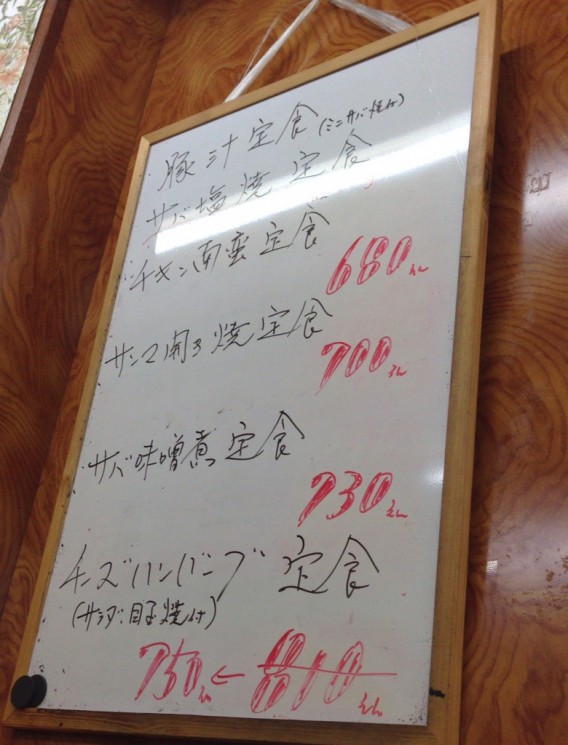 豚汁定食(ミニサバ焼付)
サバ塩焼定食
チキン南蛮定食
680えん
サンマ開き焼定食
700えん
サバ味噌煮定食
730えん
チーズハンバーグ定食
(サラダ・目玉焼付)
750えん←810えん